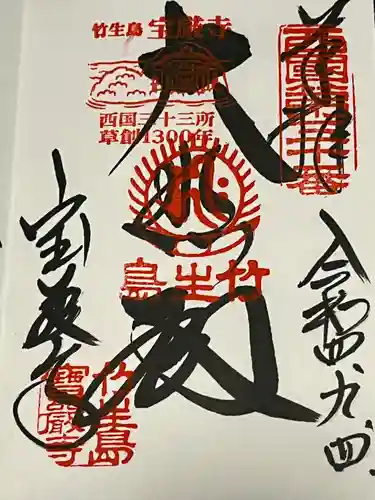 奉拝
西国第三十番
令和四、九、四、
竹生島 宝厳寺
西国三十三所
草創1300年
大悲殿
竹生島
宝厳寺
竹生島
寶嚴寺